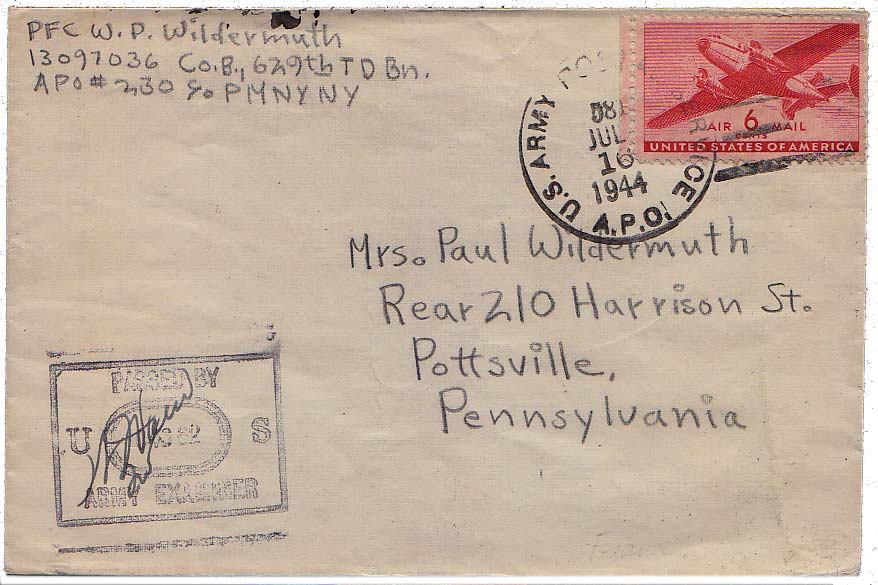 PFC W. P. Wildermuth
13097036 Co.B., 629th TD Bn.
APO # 230 c/o PMNYNY
U.S. ARMY POSTAL SERVICE
JUL
16
1944
A.P.O.
AIR 6 MAIL
CENTS
UNITED STATES OF AMERICA
Mrs. Paul Wildermuth
Rear 210 Harrison St.
Pottsville,
Pennsylvania
PASSED BY
U S
ARMY EXAMINER